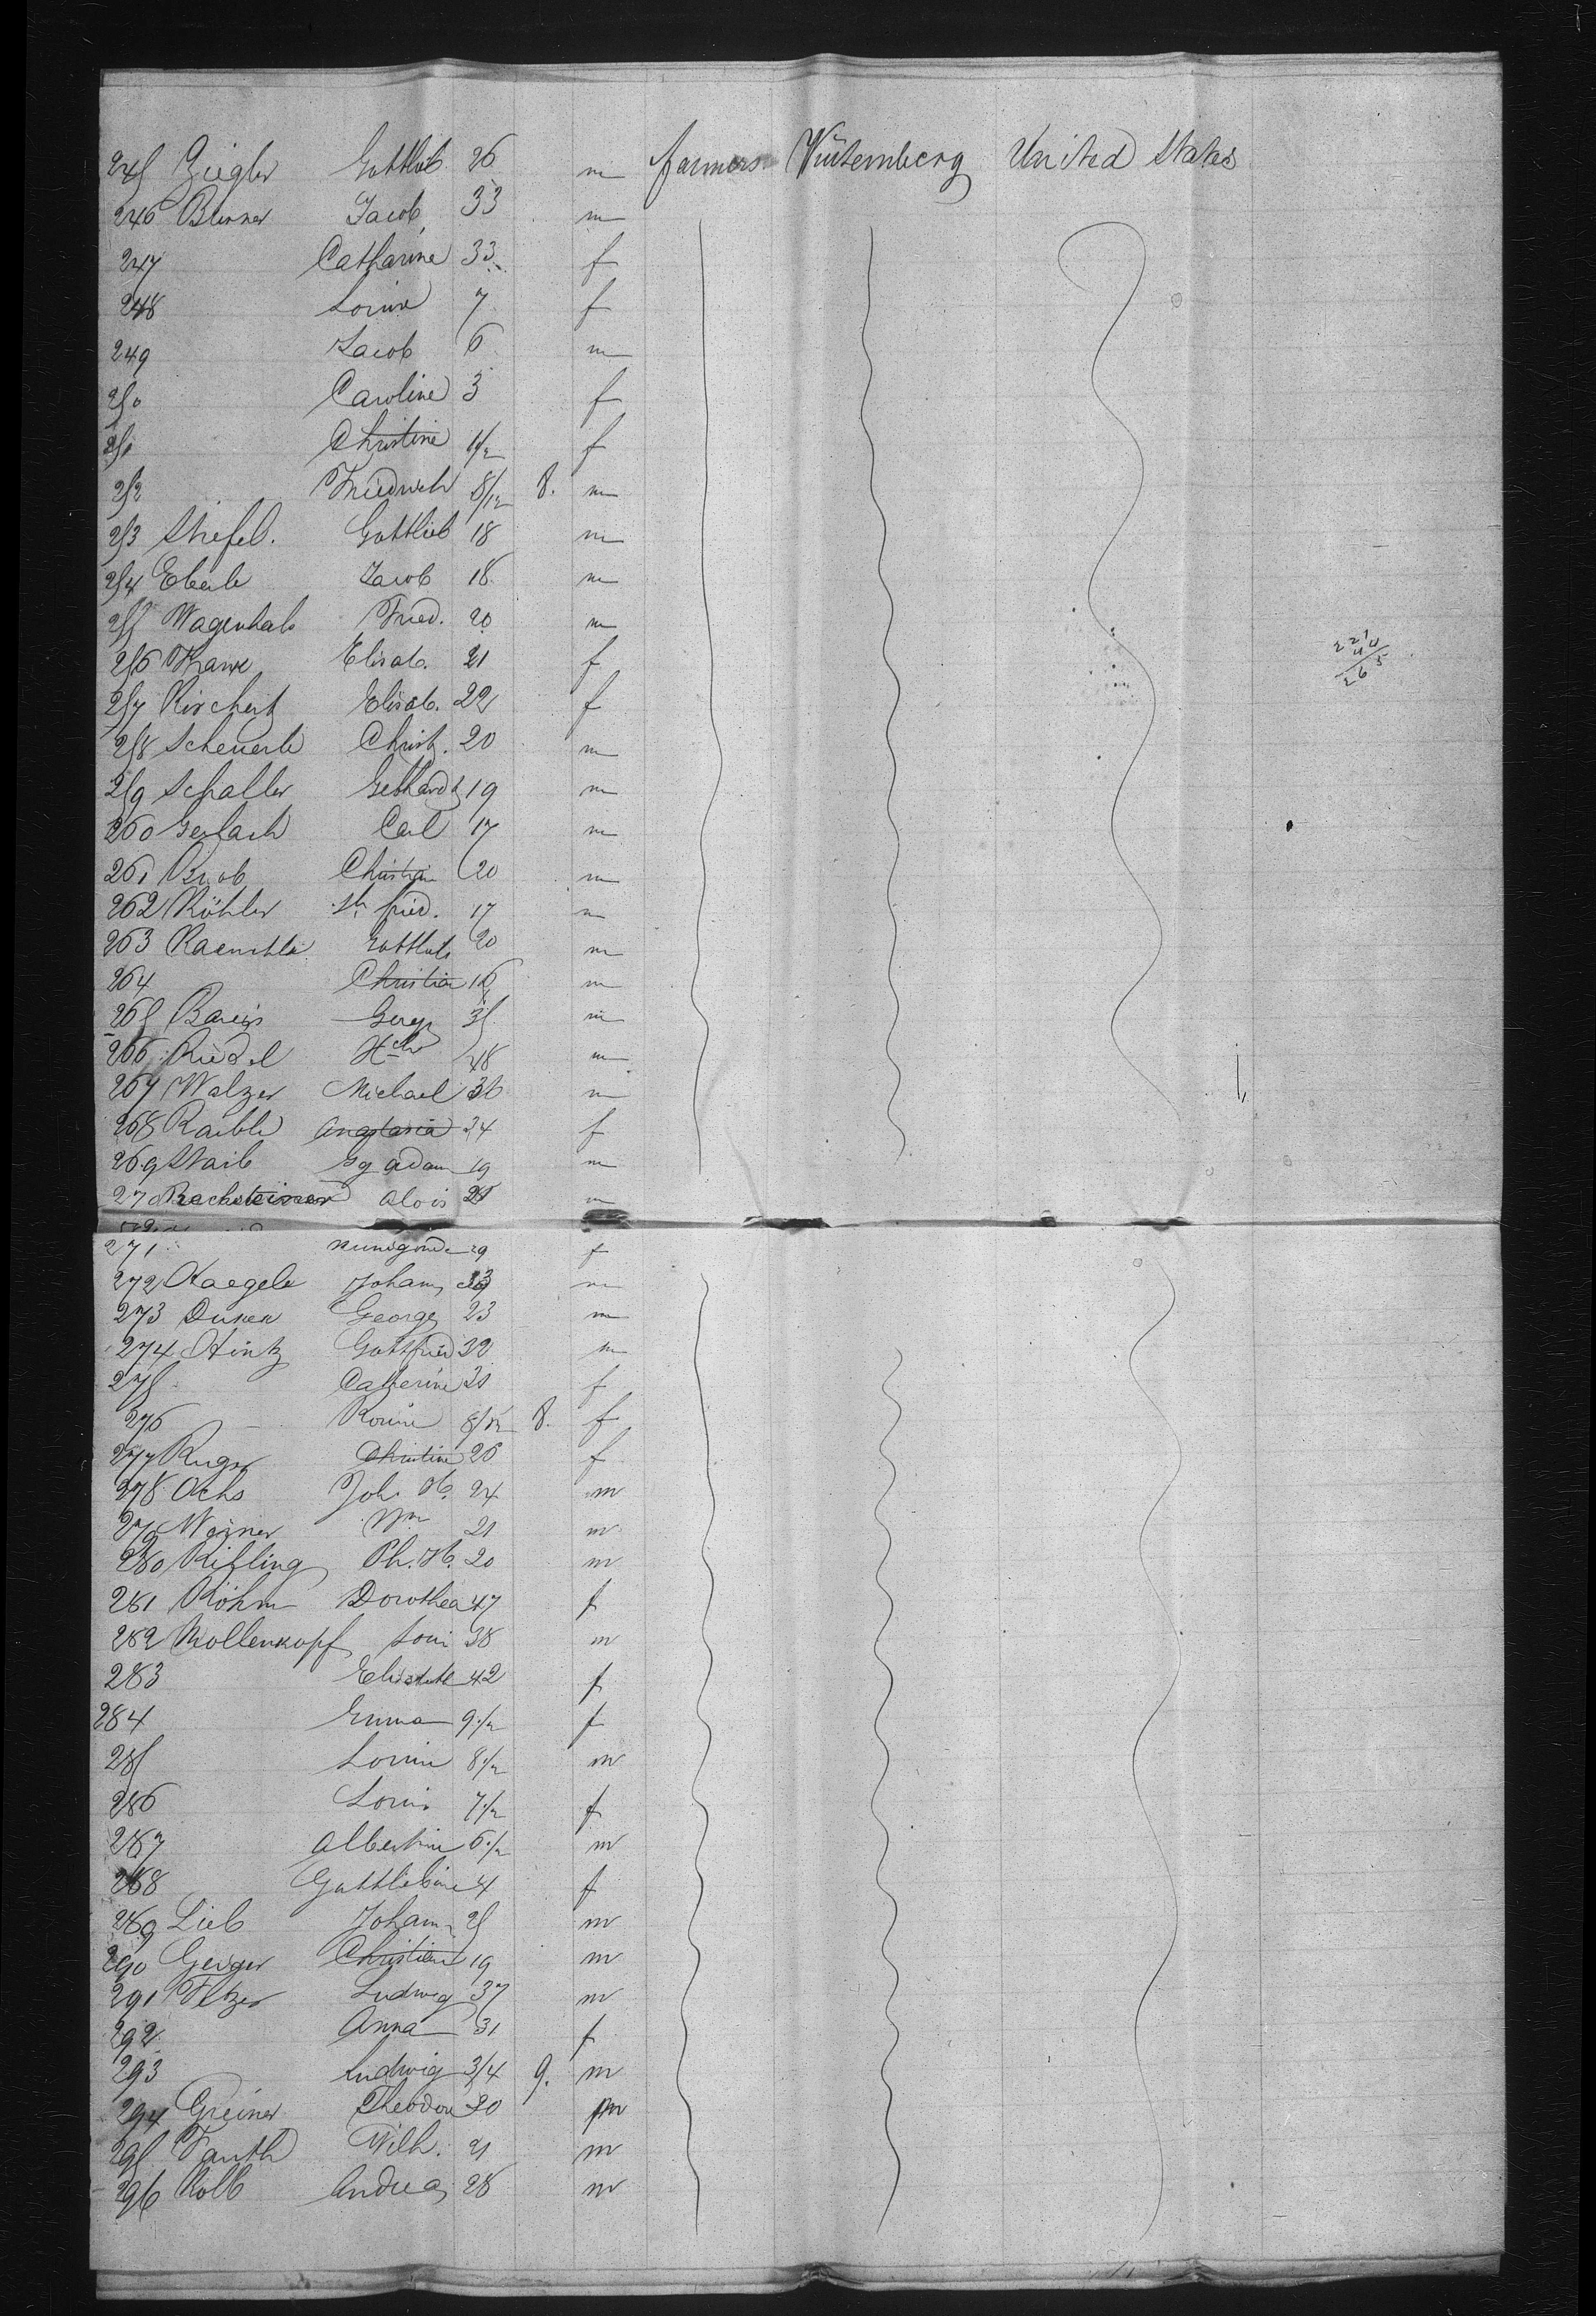 245 Ziegler Gottlieb 26 m farmers Würtemberg United States
246 Brenner Jacob 33 m
247 Catharine 33 f
248 Louise 7 f
249 Jacob 6 m
250 Caroline 3 f
251 Christine 1/2 f
252 Friedrich 8/12 8. m
253 Stiefel. Gottlieb 18 m
254 Eberle Jacob 18 m
255 Wagenhals Fried. 20 m
256 Elisab. 21 f
257 Elisab. 22 f
258 Scheuerle Christ. 20 m
259 Schaller Gebhardt 19 m
260 Gerlach Carl 17 m
261 Christian 20 m
262 Köhler fried. 17 m
263 Gottlieb 20 m
264 Christian 16 m
265 Bareis Georg 35 m
266 Riedel Hch 48 m
267 Walzer Michael 36 m
268 Raible Anastasia 24 f
269 Staib Jg Adam 19 m
270 Alois m
271 Kunigonde 29 f
272 Haegele Johann m
273 George 23 m
274 Hintz Gottfried 32 m
275 Catherine f
276 8/12 8. f
277 Christine 26 f
278 Ochs Joh. H. 24 m
279 Wm 21 m
280 Ph. H. 20 m
281 Röhm Dorothea 47 f
282 Kollenkopf Loui 38 m
283 42 f
284 Emma 9 1/2 f
285 8 1/2 m
286 7 1/2 f
287 Albertine 6 1/2 m
288 Gottliebine 4 f
289 Lieb Johann 25 m
290 Geiger Christian 19 m
291 Fetzer Ludwig 37 m
292 Anna 31 f
293 Ludwig 3/4 9. m
294 Greiner Theodor m
295 Fauth Wilh. 21 m
296 Kolb Andreas 28 m